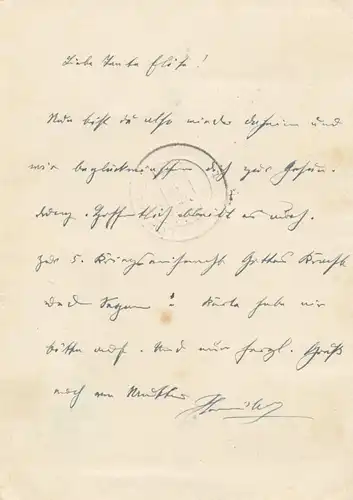 Liebe Tante Elise!
Nun bist du also wieder daheim und
wir beglückwünschen dich zur Gesun-
dung. Hoffentlich bleibt es auch.
Zur 5. Kriegsweihnacht Gottes Kraft
und Segen! Karte habe wir
bitte auf. Und nur herzl. Gruß
auch von Mutter